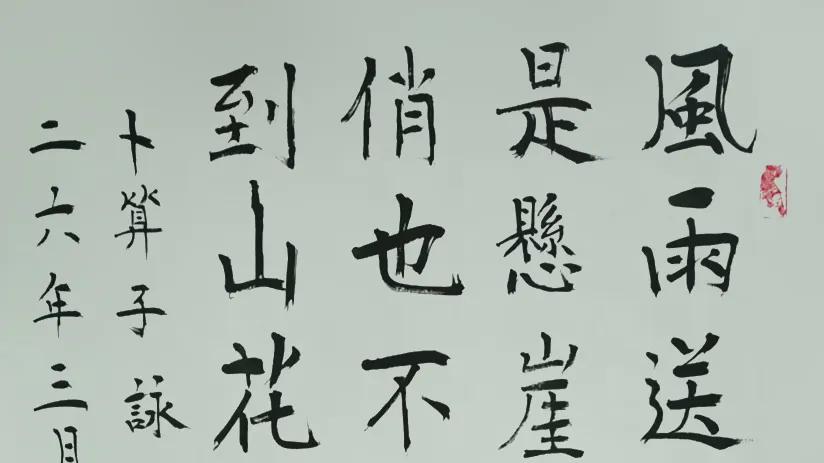 風雨送
是懸崖
俏也不
到山花
卜算子詠
二六年三月